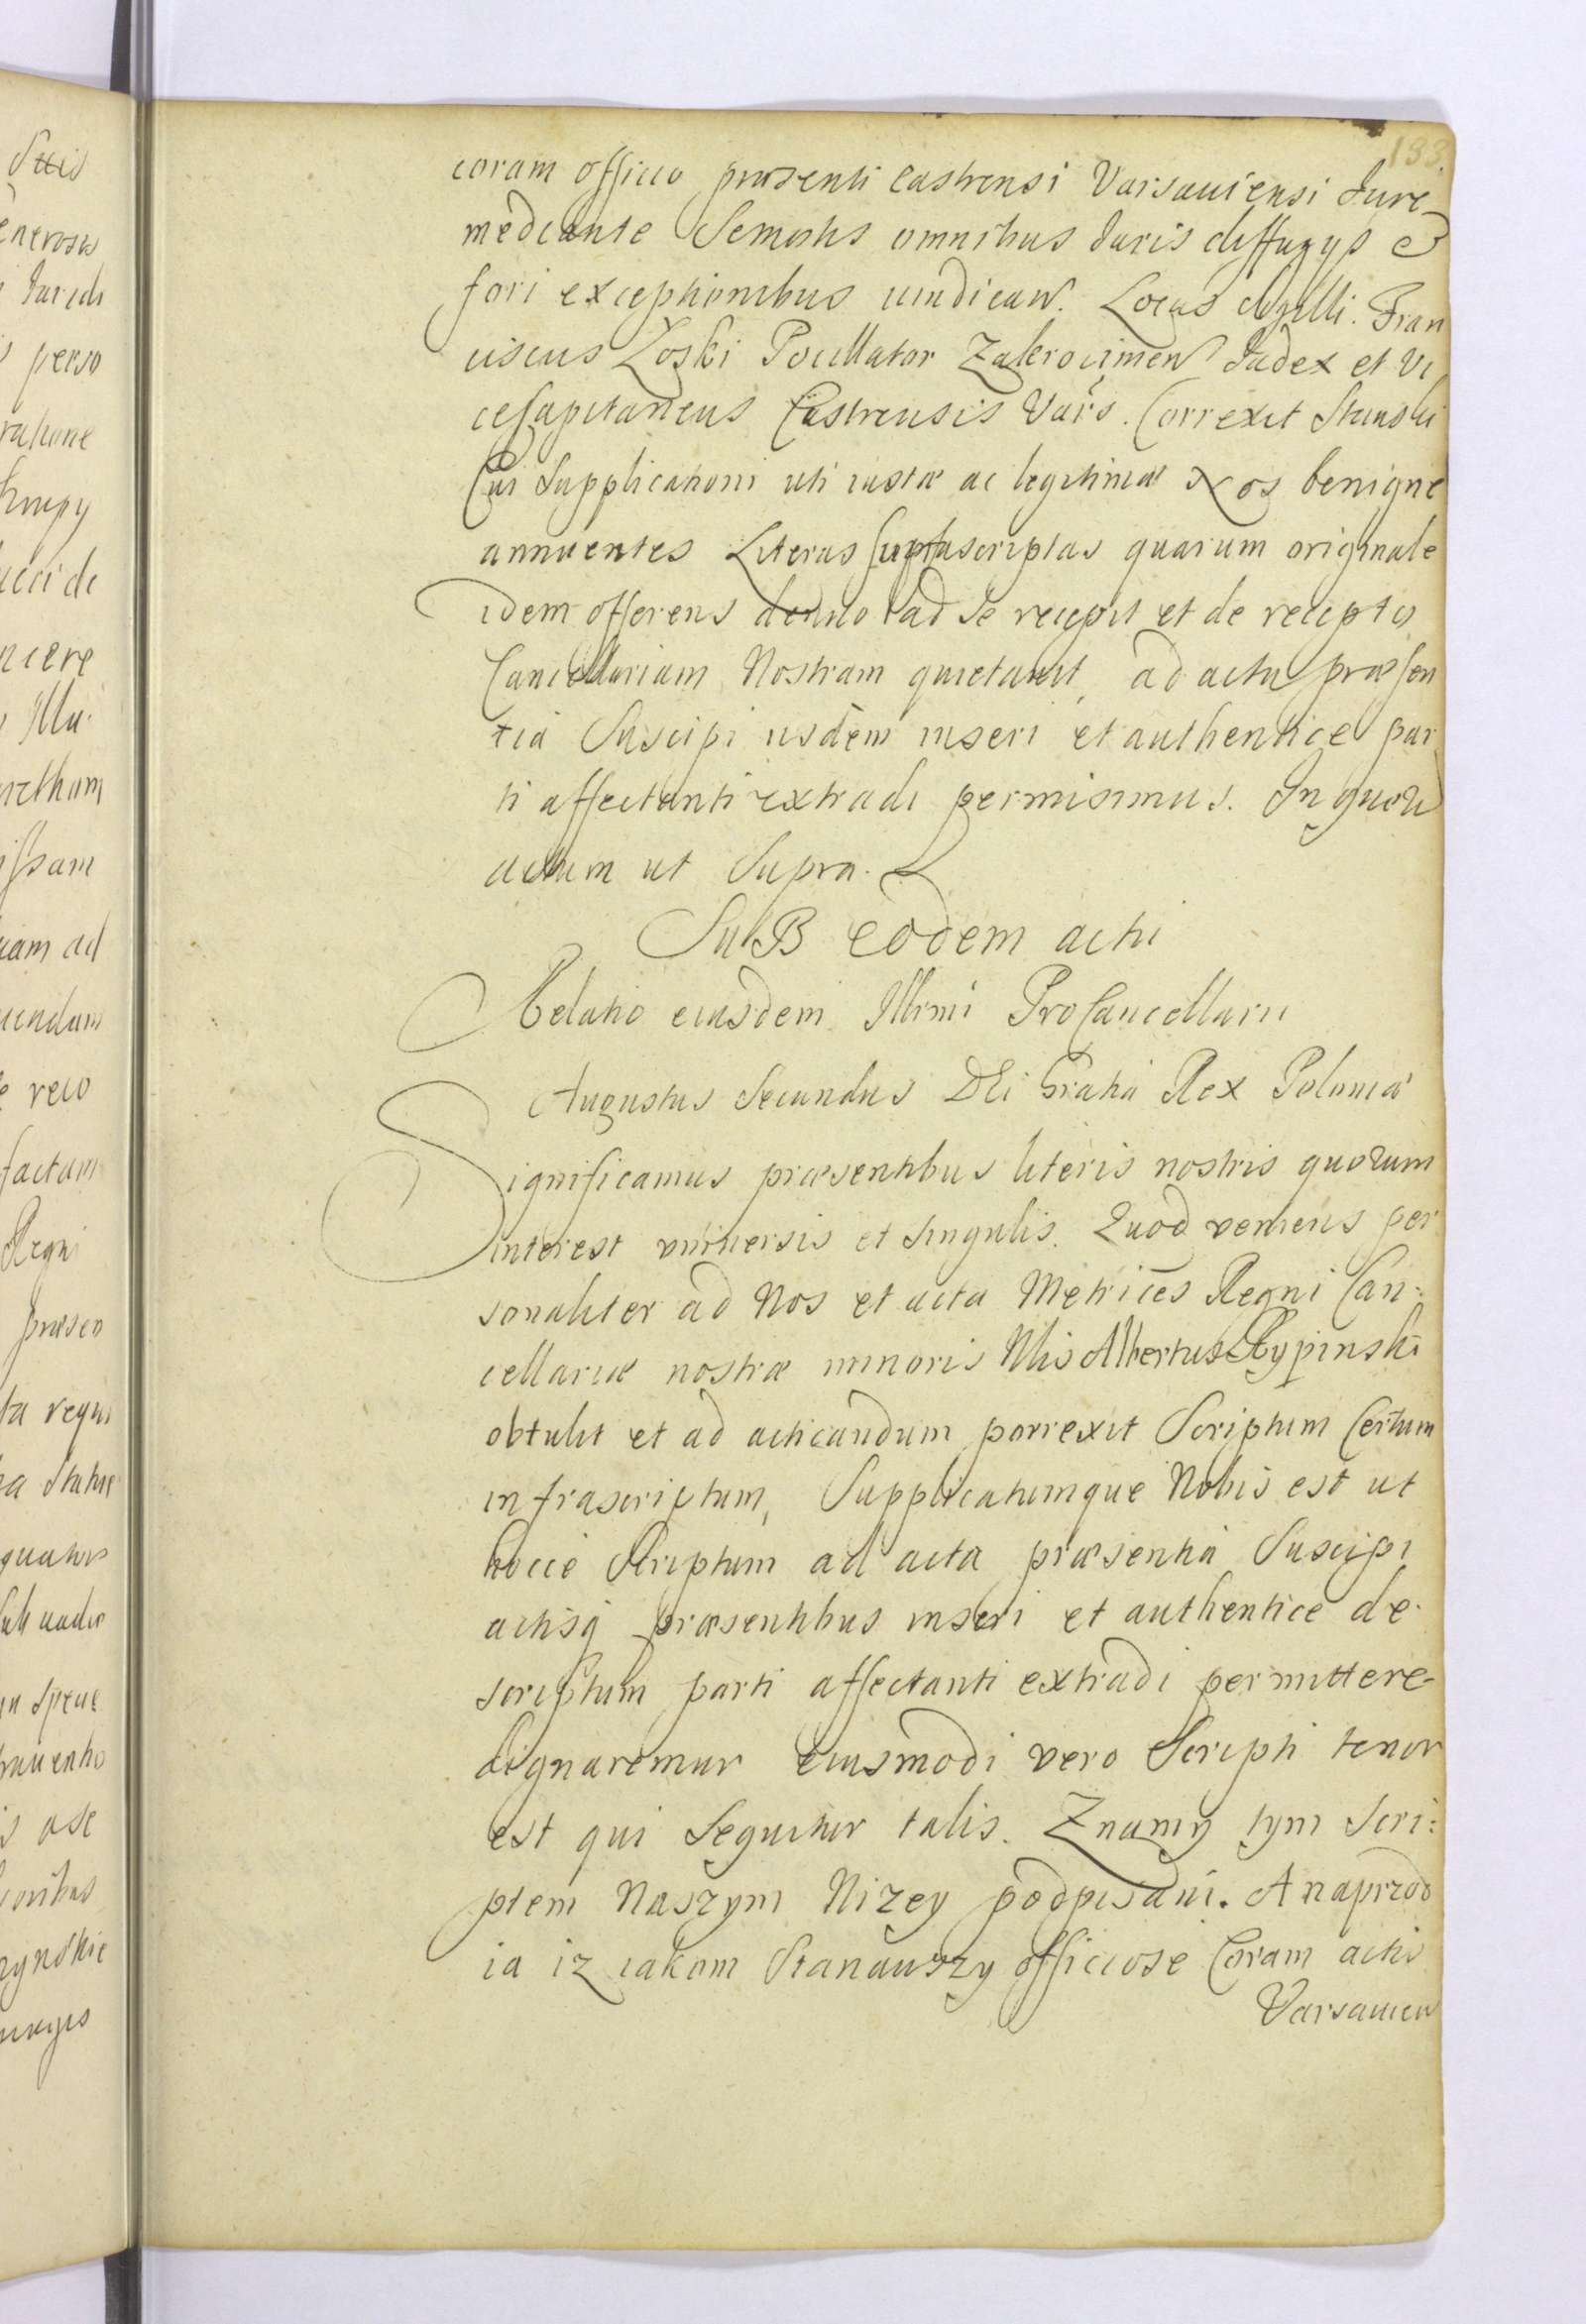 133.
coram officio præsenti Castrensi Varsauiensi Jure
mediante Semotis omnibus Juris diffugys &
fori exceptionibus uindicaN. Locus Sigilli. Fran
ciscus Łoski Pocillator ZakrocimeN Judex et Vi
ceCapitaneus Castrensis Vars. Correxit
Cui Supplicationi uti iustæ ac legitimæ Nos benigne
annuentes Literas suprascriptas quarum originale
idem offerens denuo ad se recepit et de recepto
Cancellariam Nostram quietauit, ad acta præsen
tia Suscipi iisdem inseri et authentice par
ti affectanti extradi permisimus. In quoru
actum ut Supra.
SuB eodem acti
Relatio eiusdem Illrmi ProCancellarii
Augustus Secundus DEi Gratia Rex Poloniæ
Significamus præsentibus literis nostris quorum
interest vniuersis et singulis. Quod veniens per
sonaliter ad Nos et acta Metrices Regni Can:
cellariæ nostræ minoris Mlis Albertus Rypinski
obtulit et ad acticandum porrexit Scriptum Certum
infrascriptum, Supplicatumque Nobis est ut
hocce Scriptum ad acta præsentia Suscipi
actisq præsentibus inseri et authentice de
scriptum parti affectanti extradi permittere
dignaremur eiusmodi vero Scripti tenor
est qui Sequitur talis. Znamy tym Scri:
ptem Naszym Nizey podpisani. A naprzod
ia iz iakom Stanauszy officiose Coram actis
VarsauieN